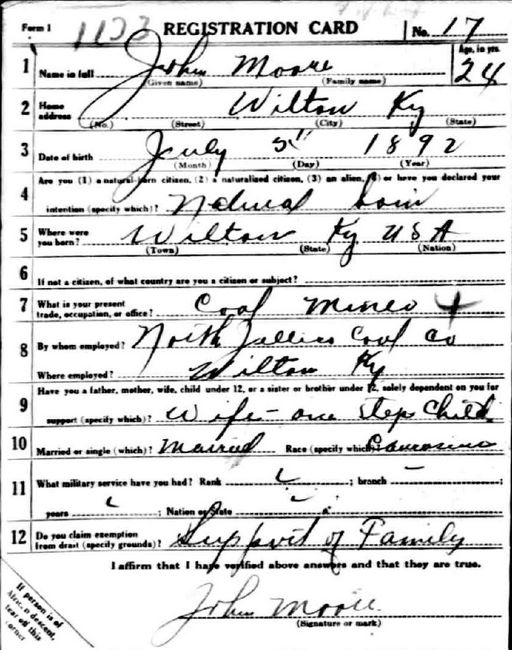 Form 1 1122 REGISTRATION CARD No. 17
1 Name in full John Moore Age, in yrs. 24
(Given name) (Family name)
2 Home address Wilton Ky
(No.) (Street) (City) (State)
3 Date of birth July 5" 1892
(Month) (Day) (Year)
4 Are you (1) a natural-born citizen, (2) a naturalized citizen, (3) an alien, (4) or have you declared your
intention (specify which)? Natural born
5 Where were you born? Wilton Ky USA
(Town) (State) (Nation)
6 If not a citizen, of what country are you a citizen or subject?
7 What is your present trade, occupation, or office? Coal Miner
8 By whom employed? North Jellico Coal Co
Where employed? Wilton Ky
9 Have you a father, mother, wife, child under 12, or a sister or brother under 12, solely dependent on you for
support (specify which)? Wife - one Step Child
10 Married or single (which)? Married Race (specify which)?
11 What military service have you had? Rank ; branch ;
years ; Nation or State
12 Do you claim exemption from draft (specify grounds)? Support of Family
I affirm that I have verified above answers and that they are true.
John Moore
(Signature or mark)
If person is of
African descent,
tear off this
corner